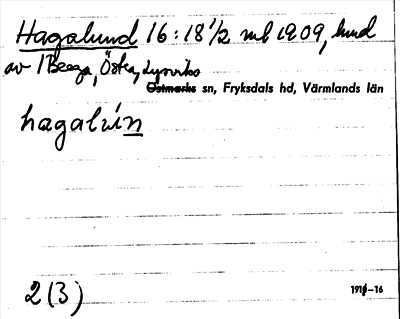 Hagalund 16:18 1/2 ml 1909, lund
av 1 Berga, Östra, Lysviks
Östmarks sn, Fryksdals hd, Värmlands län
hagalún
2(3)
1916–16